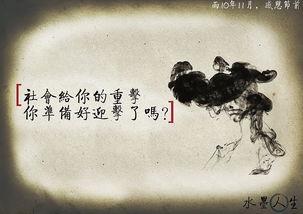 而10年11月，感恩節前
社會給你的重擊
你準備好迎擊了嗎?
水墨人生